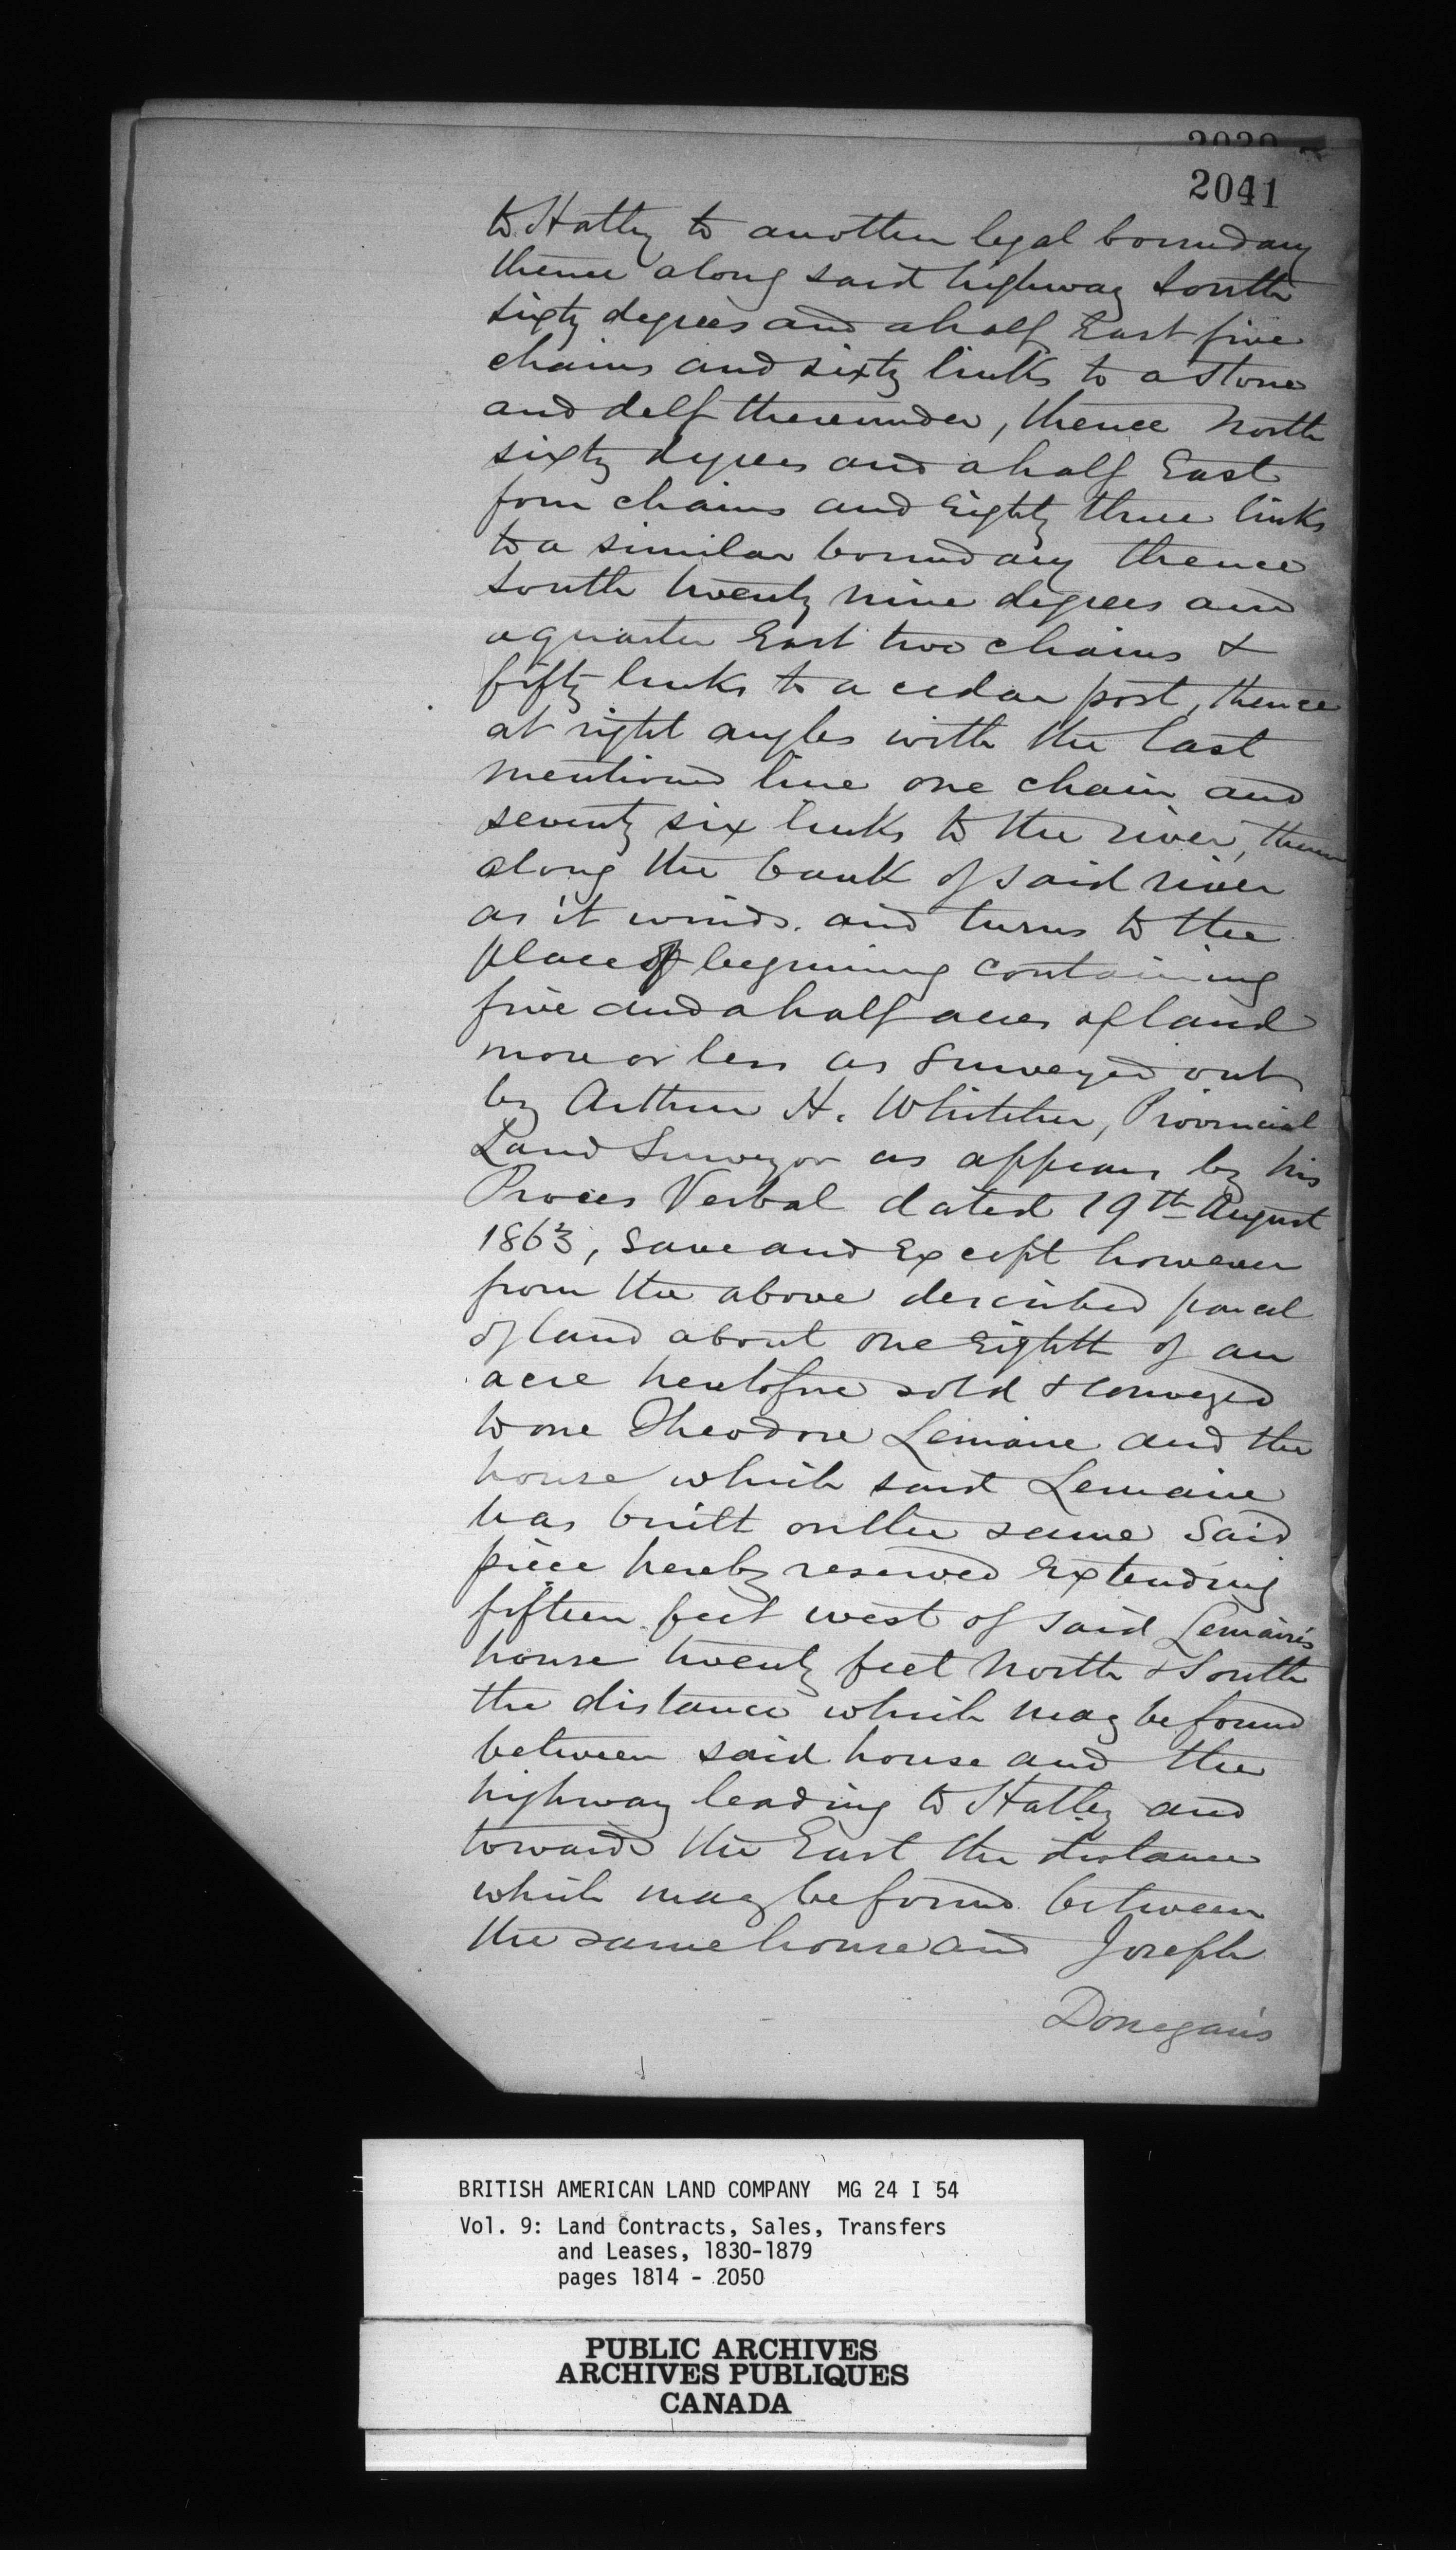 2041
to Hatley to another legal boundary
thence along said highway South
sixty degrees and a half East five
chains and sixty links to a stone
and delf thereunder, thence North
sixty degrees and a half East
four chains and Eighty three links
to a similar boundary thence
South twenty nine degrees and
a quarter East two chains &
fifty links to a cedar post, thence
at right angles with the last
mentioned line one chain and
seventy six links to the river, thence
along the bank of said river
as it winds and turns to the
place of beginning containing
five and a half acres of land
more or less as Surveyed out
by Arthur H. Whitcher, Provincial
Land Surveyor as appears by his
Proces Verbal dated 19th August
1863, Save and Except however
from the above described parcel
of land about one Eighth of an
acre heretofore sold & conveyed
to one Theodore Lemaire and the
house which said Lemaire
has built on the same Said
piece hereby reserved Extending
fifteen feet west of said Lemaire's
house twenty feet North & South
the distance which may be found
between said house and the
highway leading to Hatley and
towards the East the distance
which may be found between
the same house and Joseph
Donegan's
BRITISH AMERICAN LAND COMPANY MG 24 I 54
Vol. 9: Land Contracts, Sales, Transfers
and Leases, 1830-1879
pages 1814 - 2050
PUBLIC ARCHIVES
ARCHIVES PUBLIQUES
CANADA